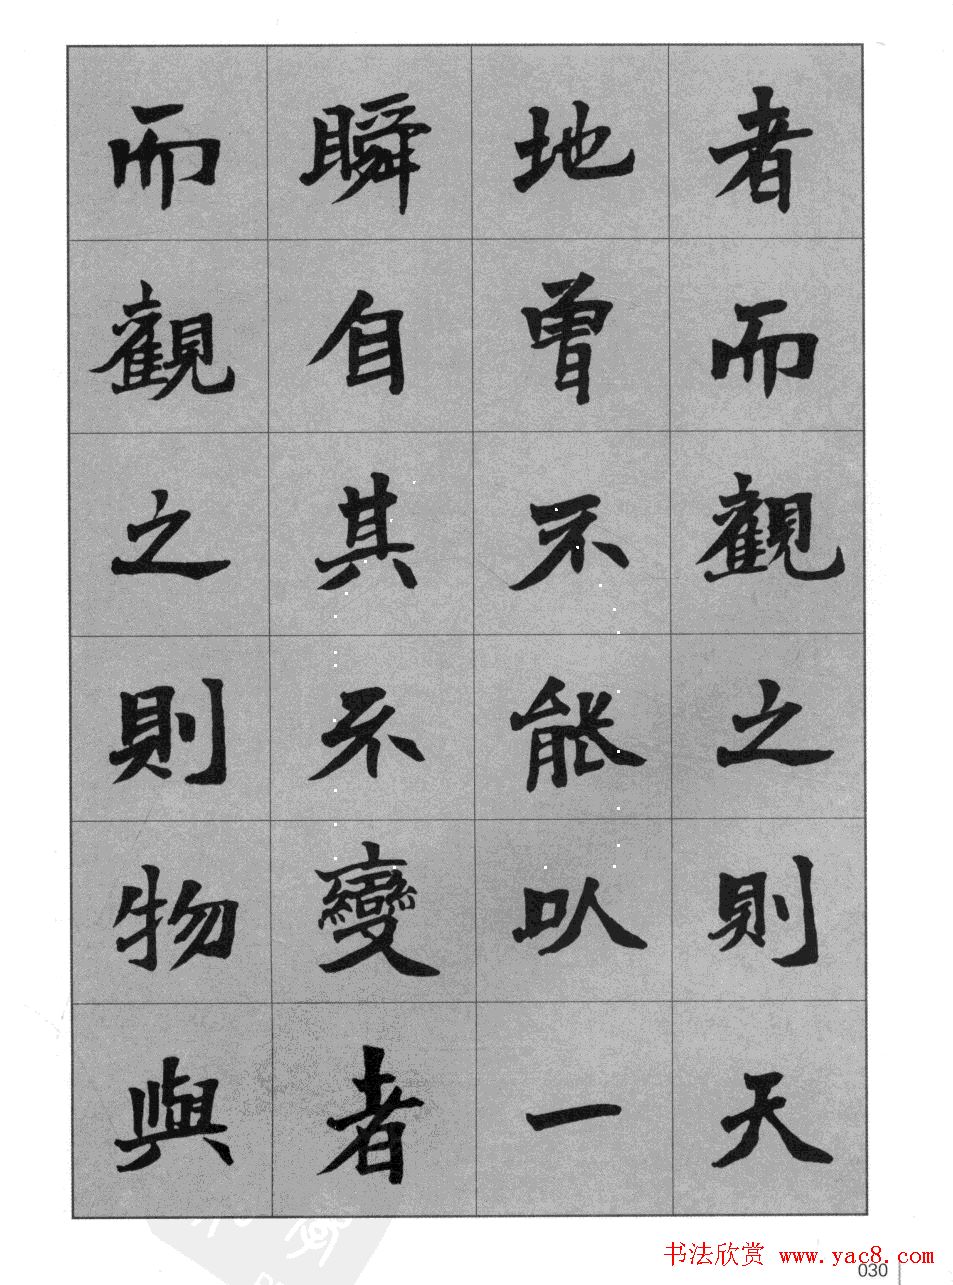 者而觀之則天
地曾不能以一
瞬自其不變者
而觀之則物與
书法欣赏 www.yac8.com
030